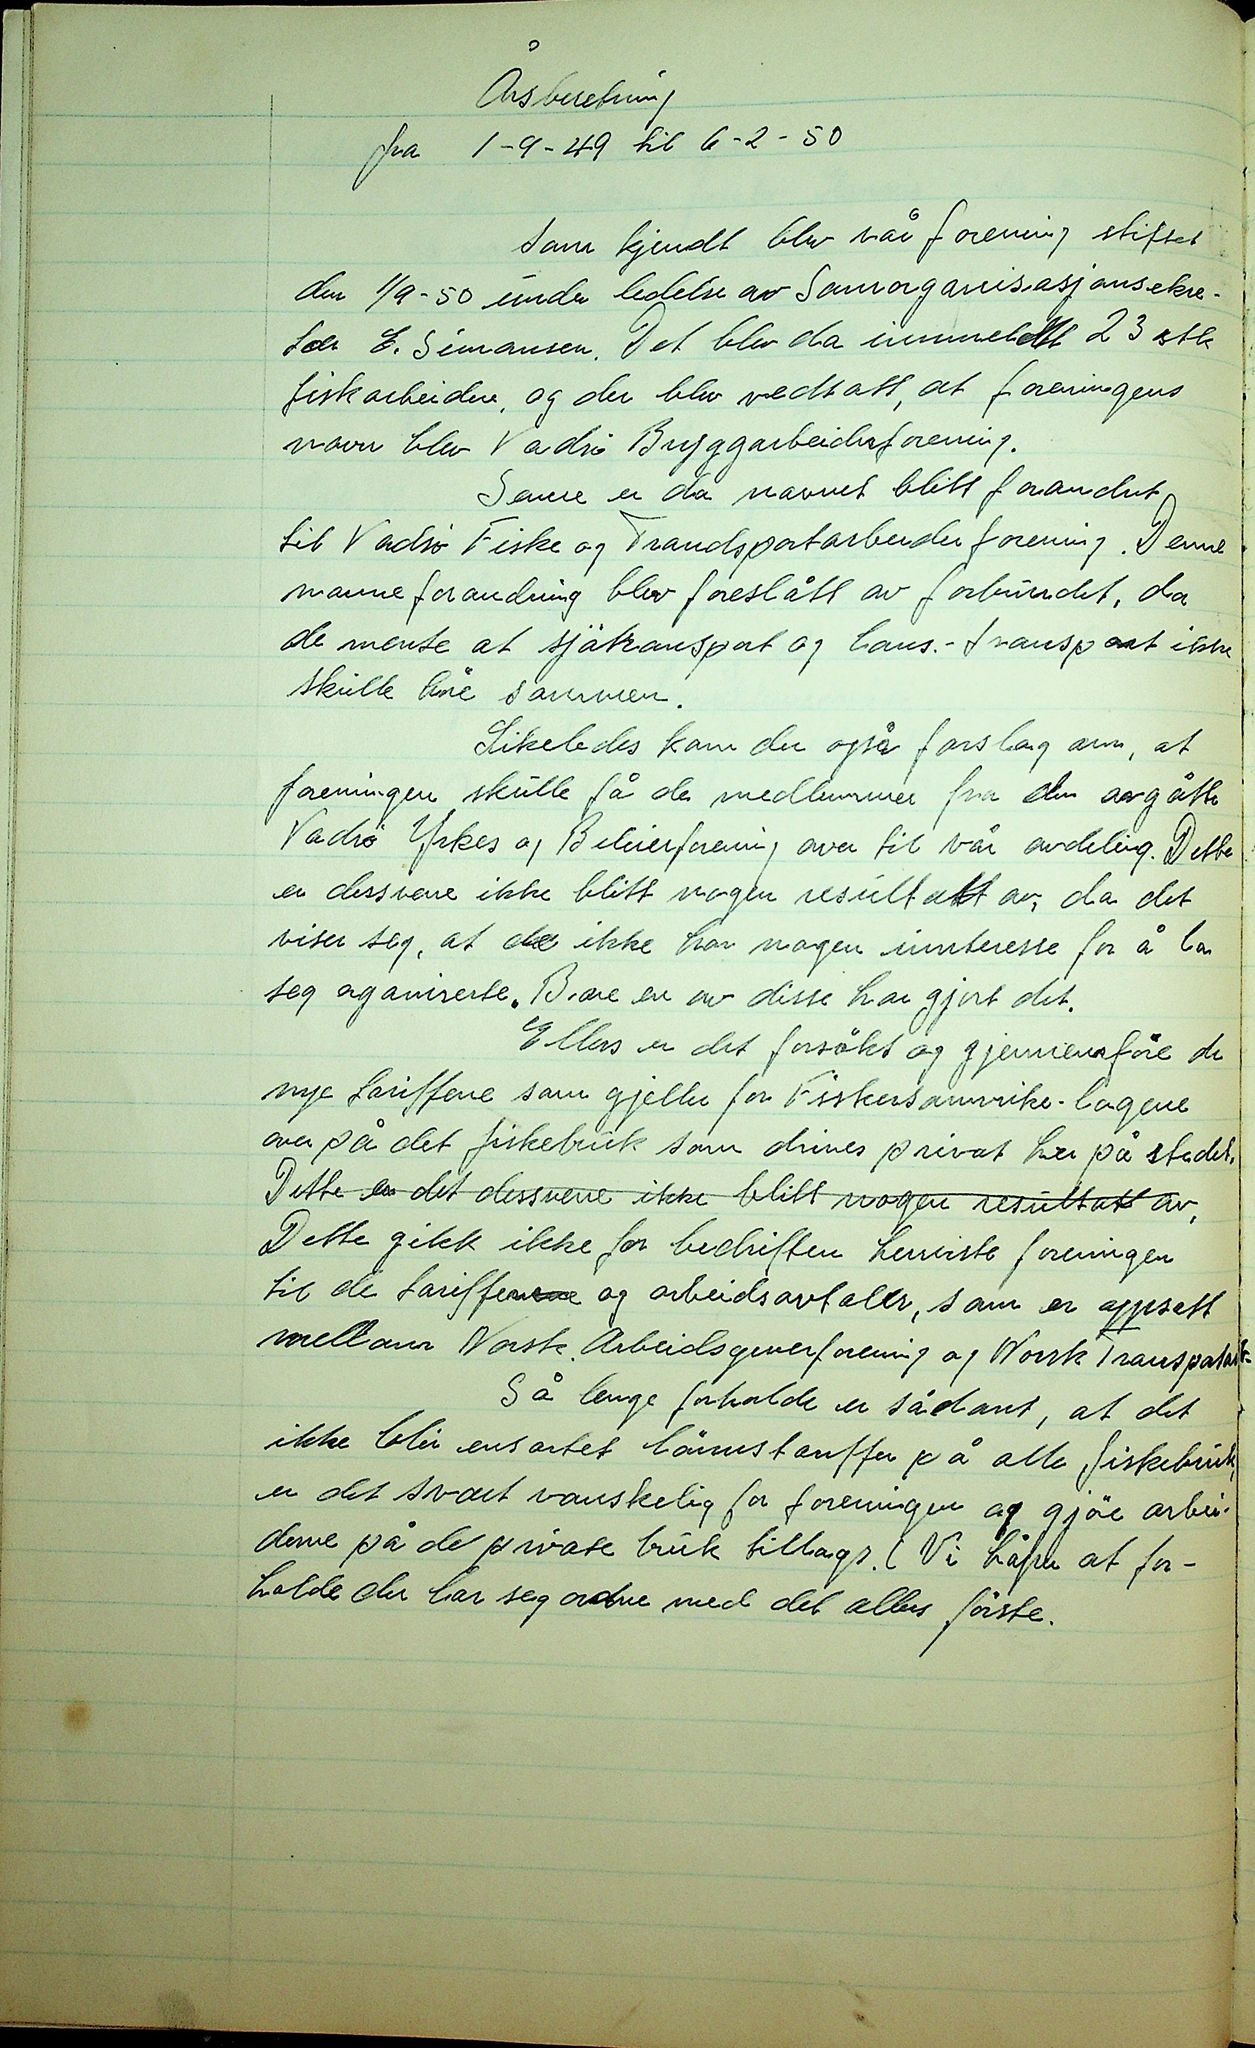 Årsberetning
fra 1-9-49 til 6-2-50
Som kjendt blev vår forening stiftet
den 1/9-50 under ledelse av Samorganisasjonsekre-
tær E. Simonsen. Det blev da innmeldt 23 stk
fiskarbeidere, og der blev vedtatt, at foreningens
navn blev Vadsø Bryggarbeiderforening.
Senere er da navnet blitt forandret
til Vadsö Fiske og Trandsportarbeider forening. Denne
navneforandring blev foreslått av forbundet, da
de mente at sjötransport og lans.-transport ikke
skulle höre sammen.
Likeledes kom der også forslag om, at
foreningen skulle få de medlemmer fra den avgåtte
Vadsö Yrkes og Bileierforening over til vår avdeling. Dette
er dessverre ikke blitt nogen resultatt av, da det
viser seg, at de ikke har nogen innteresse for å la
seg organiserte. Bare en av disse har gjort det.
Ellers er det forsökt og gjennemföre de
nye tariffene som gjeller for Fiskersamvirke-lagene
over på det fiskebruk som drives privat her på stedet.
Dette er det dessverre ikke blitt nogen resultatt av,
Dette gikk ikke for bedriften henviste foreningen
til de tariffene og arbeidsavtaler, som er oppsatt
mellom Norsk. Arbeidsgiverforening og Norsk Transportarb-
Så lenge forholde er sådant, at det
ikke blir ensartet lönnstariffer på alle fiskebruk,
er det svært vanskelig for foreningen og gjöre arbei-
derne på de private bruk tillags. (Vi håper at for-
holde der lar seg ordne med det aller förste.